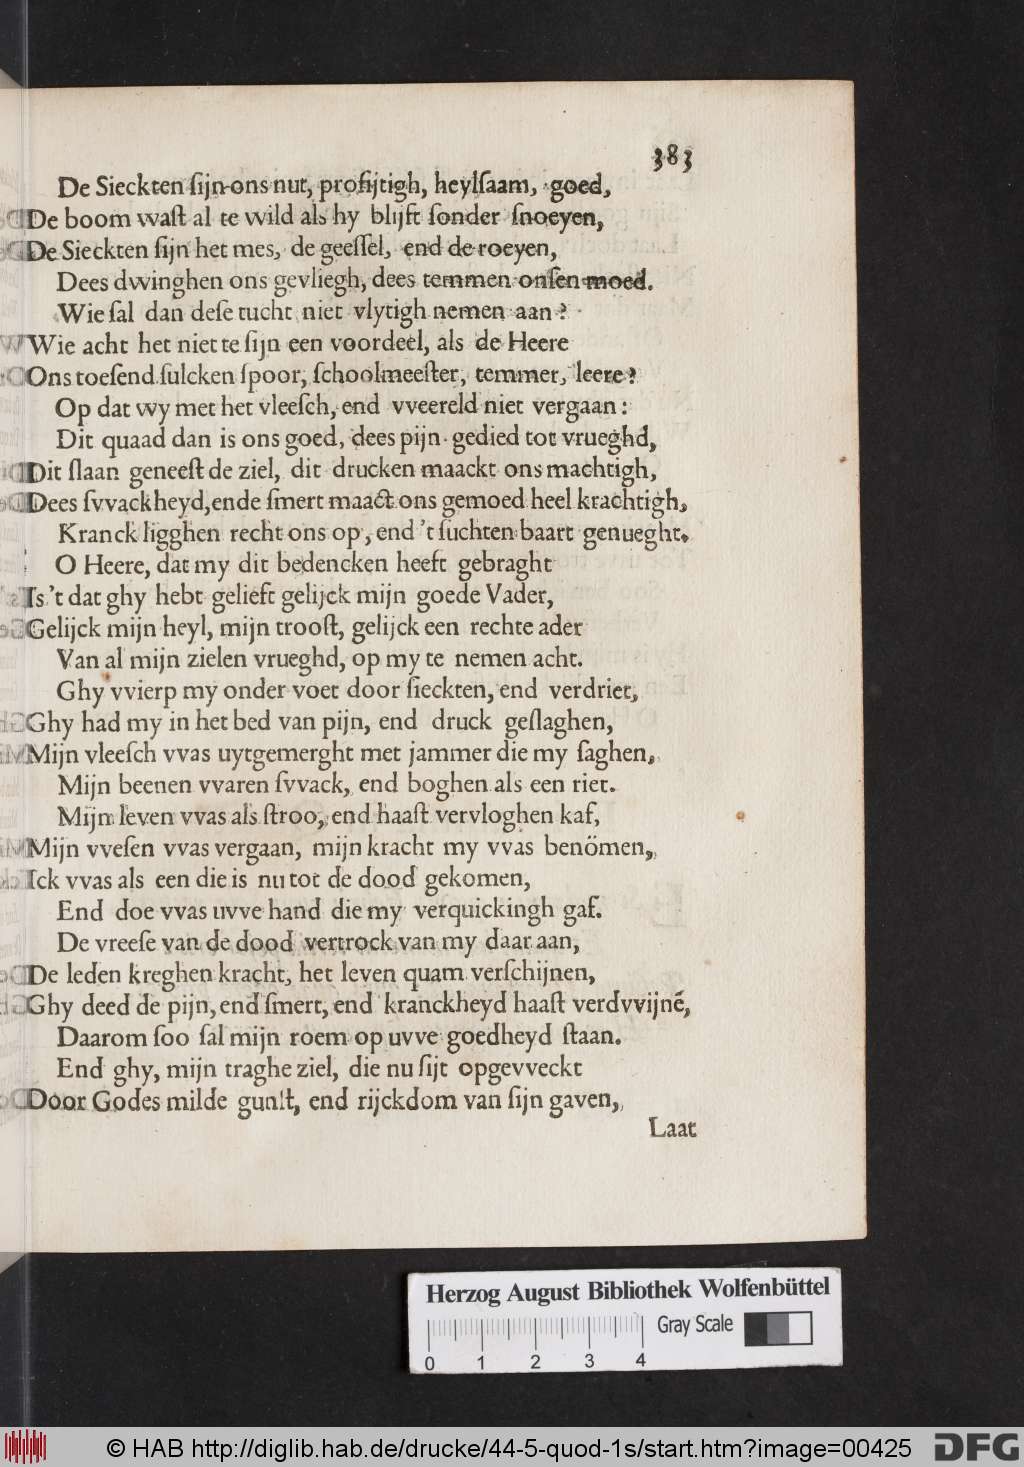 383
De Sieckten ſijn ons nut, profijtigh, heylſaam, goed,
De boom waſt al te wild als hy blijft ſonder ſnoeyen,
De Sieckten ſijn het mes, de geeſſel, end de roeyen,
Dees dwinghen ons gevliegh, dees temmen onſen moed.
Wie ſal dan deſe tucht niet vlytigh nemen aan?
Wie acht het niet te ſijn een voordeel, als de Heere
Ons toeſend ſulcken ſpoor, ſchoolmeeſter, temmer, leere?
Op dat wy met het vleeſch, end vveereld niet vergaan:
Dit quaad dan is ons goed, dees pijn gedied tot vrueghd,
Dit ſlaan geneeſt de ziel, dit drucken maackt ons machtigh,
Dees ſvvackheyd, ende ſmert maact ons gemoed heel krachtigh,
Kranck ligghen recht ons op, end 't ſuchten baart genueght.
O Heere, dat my dit bedencken heeft gebraght
Is 't dat ghy hebt gelieft gelijck mijn goede Vader,
Gelijck mijn heyl, mijn trooſt, gelijck een rechte ader
Van al mijn zielen vrueghd, op my te nemen acht.
Ghy vvierp my onder voet door ſieckten, end verdriet,
Ghy had my in het bed van pijn, end druck geſlaghen,
Mijn vleeſch vvas uytgemerght met jammer die my ſaghen,
Mijn beenen vvaren ſvvack, end boghen als een riet.
Mijn leven vvas als ſtroo, end haaſt vervloghen kaf,
Mijn vveſen vvas vergaan, mijn kracht my vvas benömen,
Ick vvas als een die is nu tot de dood gekomen,
End doe vvas uvve hand die my verquickingh gaf.
De vreeſe van de dood vertrock van my daar aan,
De leden kreghen kracht, het leven quam verſchijnen,
Ghy deed de pijn, end ſmert, end kranckheyd haaſt verdvvijnē,
Daarom ſoo ſal mijn roem op uvve goedheyd ſtaan.
End ghy, mijn traghe ziel, die nu ſijt opgevveckt
Door Godes milde gunſt, end rijckdom van ſijn gaven,
Laat
Herzog August Bibliothek Wolfenbüttel
Gray Scale
0 1 2 3 4
© HAB http://diglib.hab.de/drucke/44-5-quod-1s/start.htm?image=00425
DFG